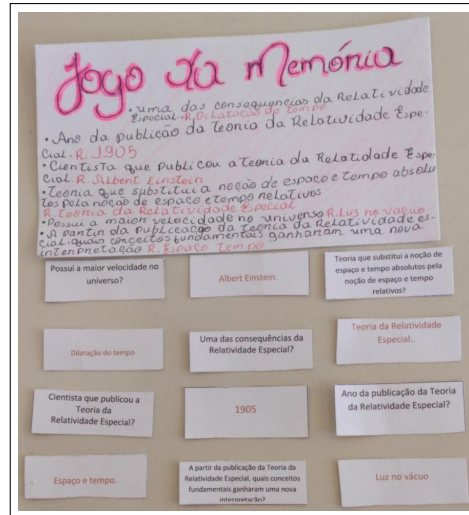 Jogo da Memória
• uma das consequências da Relatividade
Especial. R. Dilatação do tempo
• Ano da publicação da Teoria da Relatividade Espe-
cial. R. 1905
• Cientista que publicou a teoria da Relatidade Espe
cial R. Albert Einstein
• teoria que substitui a noção de espaço e tempo absolu
tos pela noção de espaço e tempo relativos
R. teoria da Relatividade Especial
• Possui a maior velocidade no universo R. Lus no vácuo
• A partir da Publicação da teoria da Relatividade es-
cial quais conceitos fundamentais ganharam uma nova
interpretação R. Espaço tempo
Possui a maior velocidade no
universo?
Albert Einstein.
Teoria que substitui a noção de
espaço e tempo absolutos pela
noção de espaço e tempo
relativos?
Dilatação do tempo
Uma das consequências da
Relatividade Especial?
Teoria da Relatividade
Especial..
Cientista que publicou a
Teoria da
Relatividade Especial?
1905
Ano da publicação da Teoria
da Relatividade Especial?
Espaço e tempo.
A partir da publicação da Teoria da
Relatividade Especial, quais conceitos
fundamentais ganharam uma nova
interpretação?
Luz no vácuo